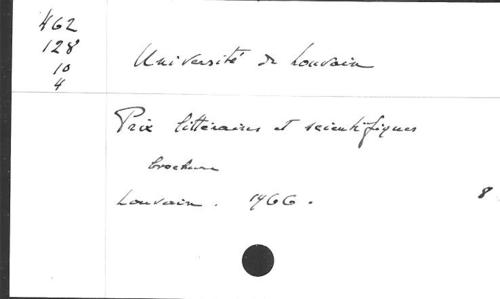 462
128
10
4
Université de Louvain
Prix littéraires et scientifiques
brochure
Louvain. 1966. 8